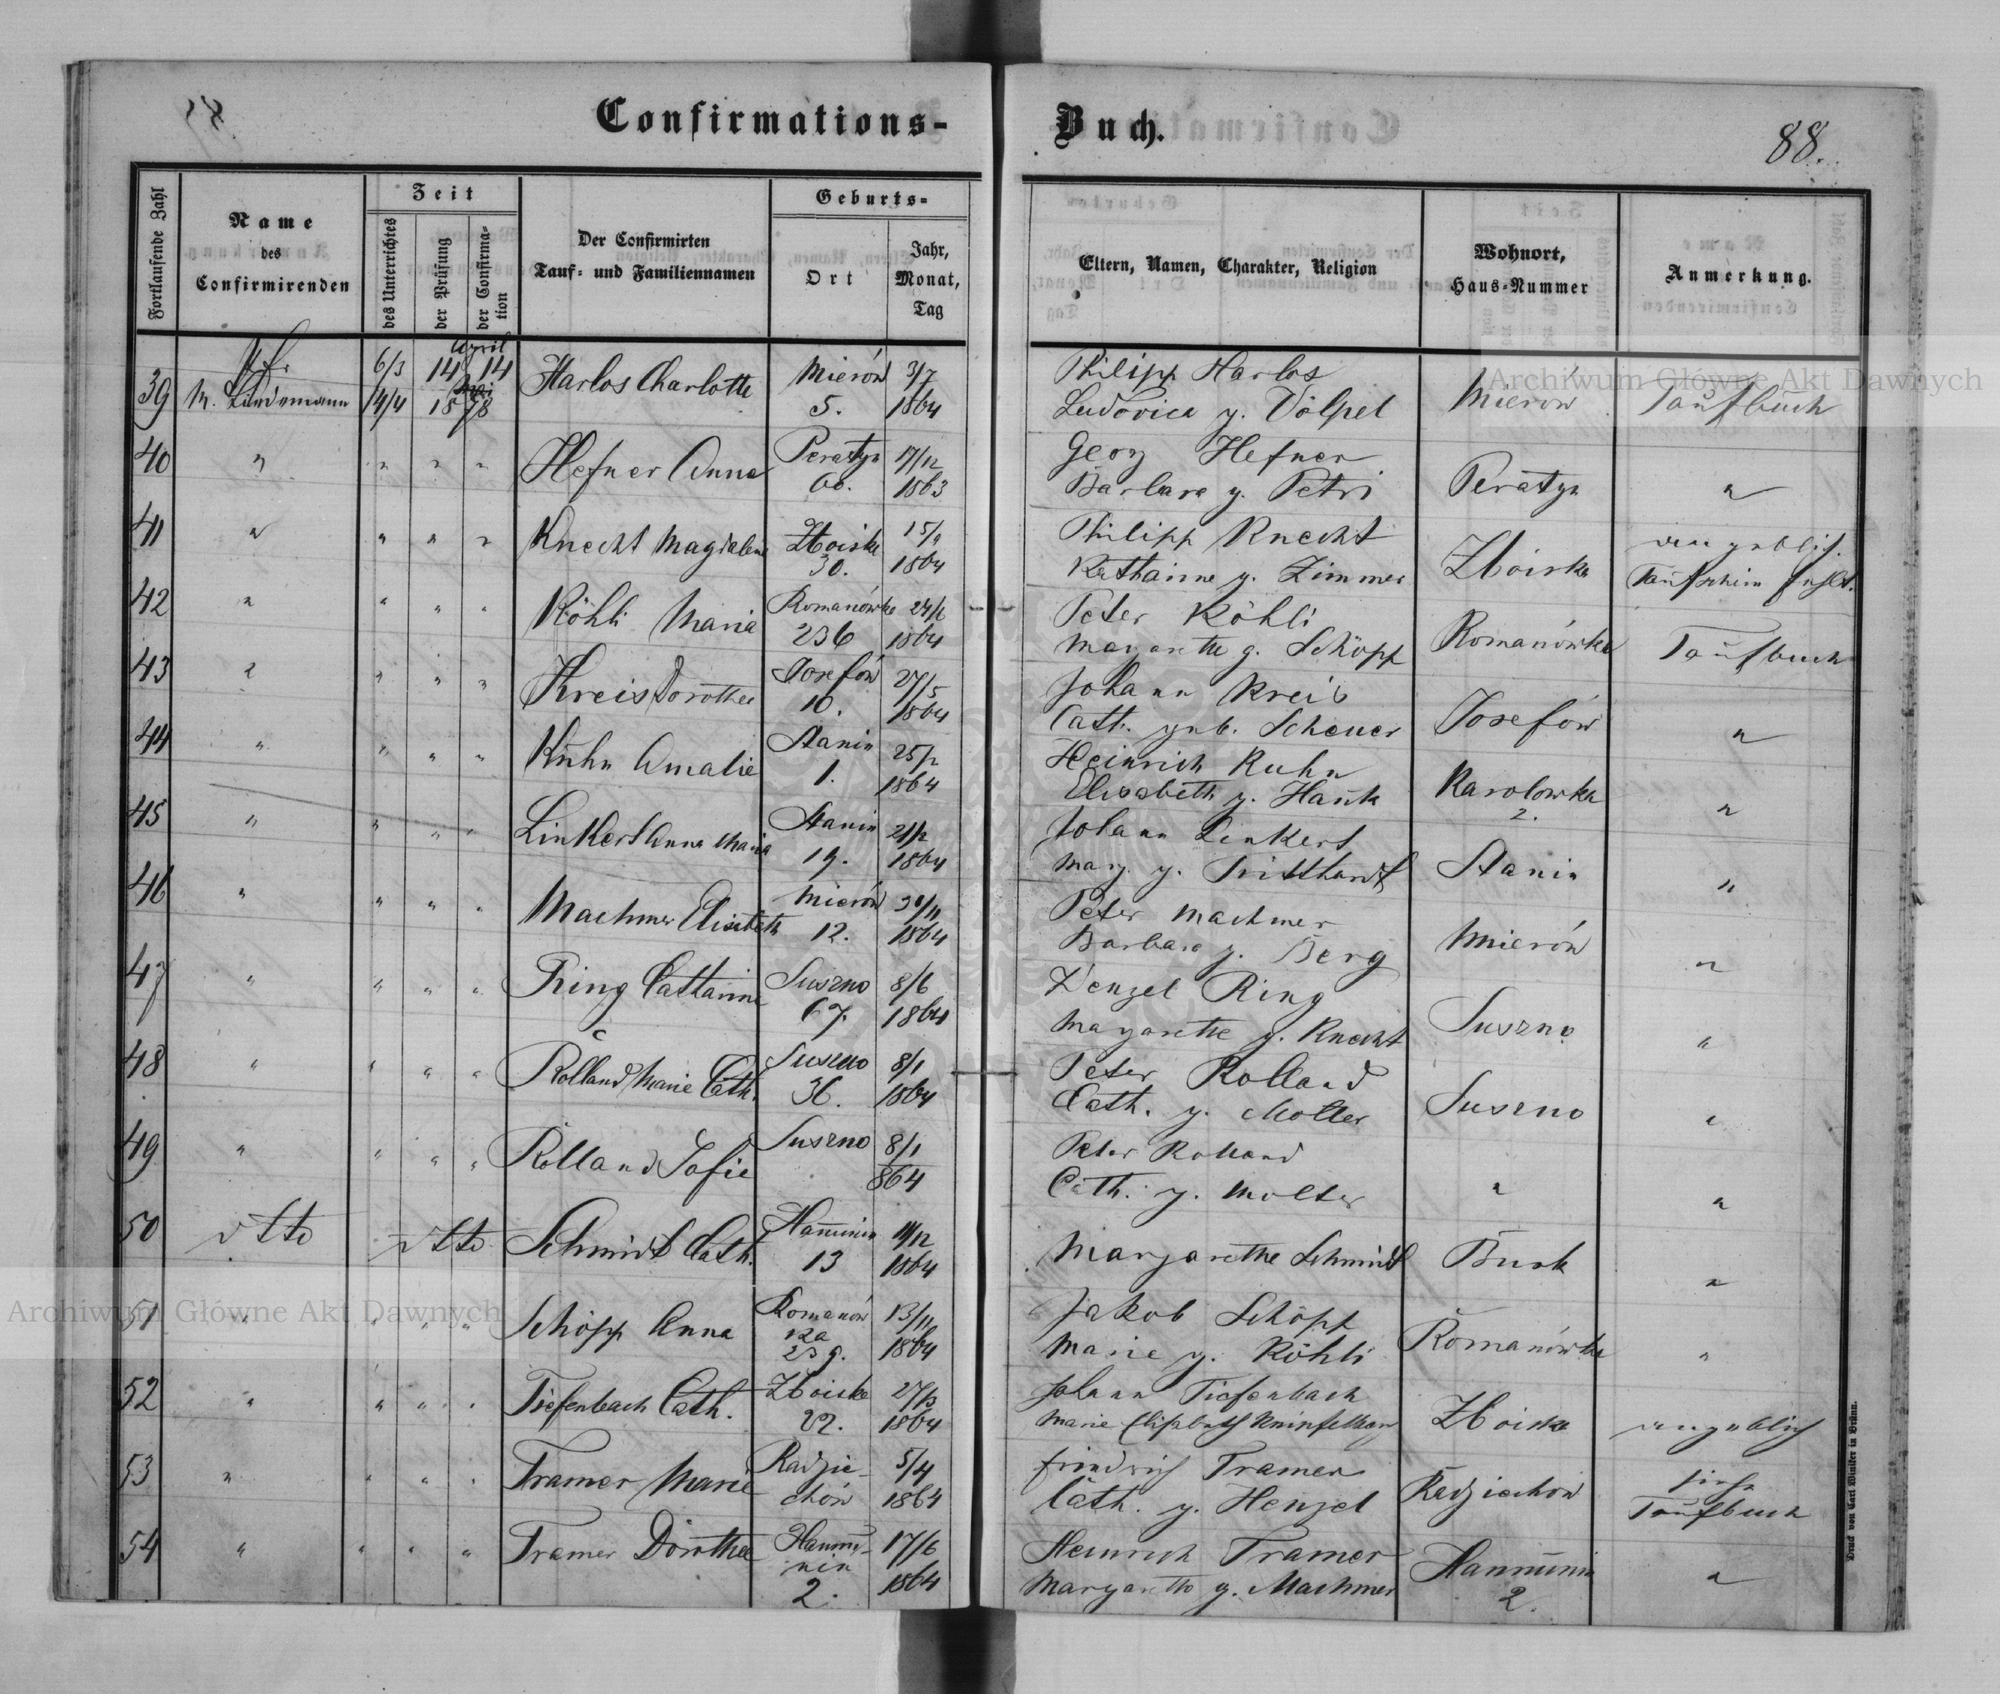 Confirmations-
Buch.
88.
Fortlaufende Zahl
Name
des
Confirmirenden
Zeit
des Unterrichtes
der Prüfung
der Confirma-
tion
Der Confirmirten
Tauf- und Familiennamen
Geburts-
Ort
Jahr,
Monat,
Tag
Eltern, Namen, Charakter, Religion
Wohnort,
Haus-Nummer
Anmerkung.
39 M. Lindemann 6/3 14/4 14 April 14 1878 Harlos Charlotte Mierów 5. 3/7 1864
Philipp Harlos
Ludovica g. Völpel Mierów Taufbuch
40 " " " " Hefner Anna Peratyn 60. 17/12 1863
Georg Hefner
Barbara g. Petri Peratyn "
41 " " " " Knecht Magdalena Zboiska 30. 15/9 1864
Philipp Knecht
Katharine g. Zimmer Zboiska angeblich. Taufschein fehlt.
42 " " " " Köhli Maria Romanówka 236 1864
Peter Köhli
Margarethe g. Schöpp Romanówka Taufbuch
43 " " " " Kreis Dorothea Josefów 10. 27/5 1864
Johann Kreis
Cath. geb. Scheuer Josefów "
44 " " " " Kuhn Amalie Stanin 1. 25/2 1864
Heinrich Kuhn
Elisabeth g. Hauk Karolowka 2. "
45 " " " " Linkert Anna Maria Stanin 19. 21/2 1864
Johann Linkert
Marg. g. Stanin "
46 " " " " Machmer Elisabeth Mierów 12. 30/11 1864
Peter Machmer
Barbara g. Berg Mierów "
47 " " " " Ring Catharine Suszno 67. 8/6 1864
Wenzel Ring
Margarethe g. Knecht Suszno "
48 " " " " Rolland Marie Cath. Suszno 36. 8/1 1864
Peter Rolland
Cath. g. Molter Suszno "
49 " " " " Rolland Sofie Suszno 8/1 864
Peter Rolland
Cath. g. Molter " "
50 dtto dtto Schmidt Cath. Hanunin 13 11/12 1864
Margarethe Schmidt Busk "
51 " " " " Schöpp Anna Romanówka 239. 13/11 1864
Jakob Schöpp
Marie g. Köhli Romanówka "
52 " " " " Tiefenbach Cath. Zboiska 22. 27/3 1864
Johann Tiefenbach
Marie Elisabeth Zboiska angeblich
53 " " " " Tramer Marie Radziechów 5/4 1864
Friedrich Tramer
Cath. g. Henzel Radziechow siehe Taufbuch
54 " " " " Tramer Dorothea Hanunin 2. 17/6 1864
Heinrich Tramer
Margaretha g. Machmer Hanunin 2. "
Druck von Carl Winiker in Brünn.
Archiwum Główne Akt Dawnych
Archiwum Główne Akt Dawnych